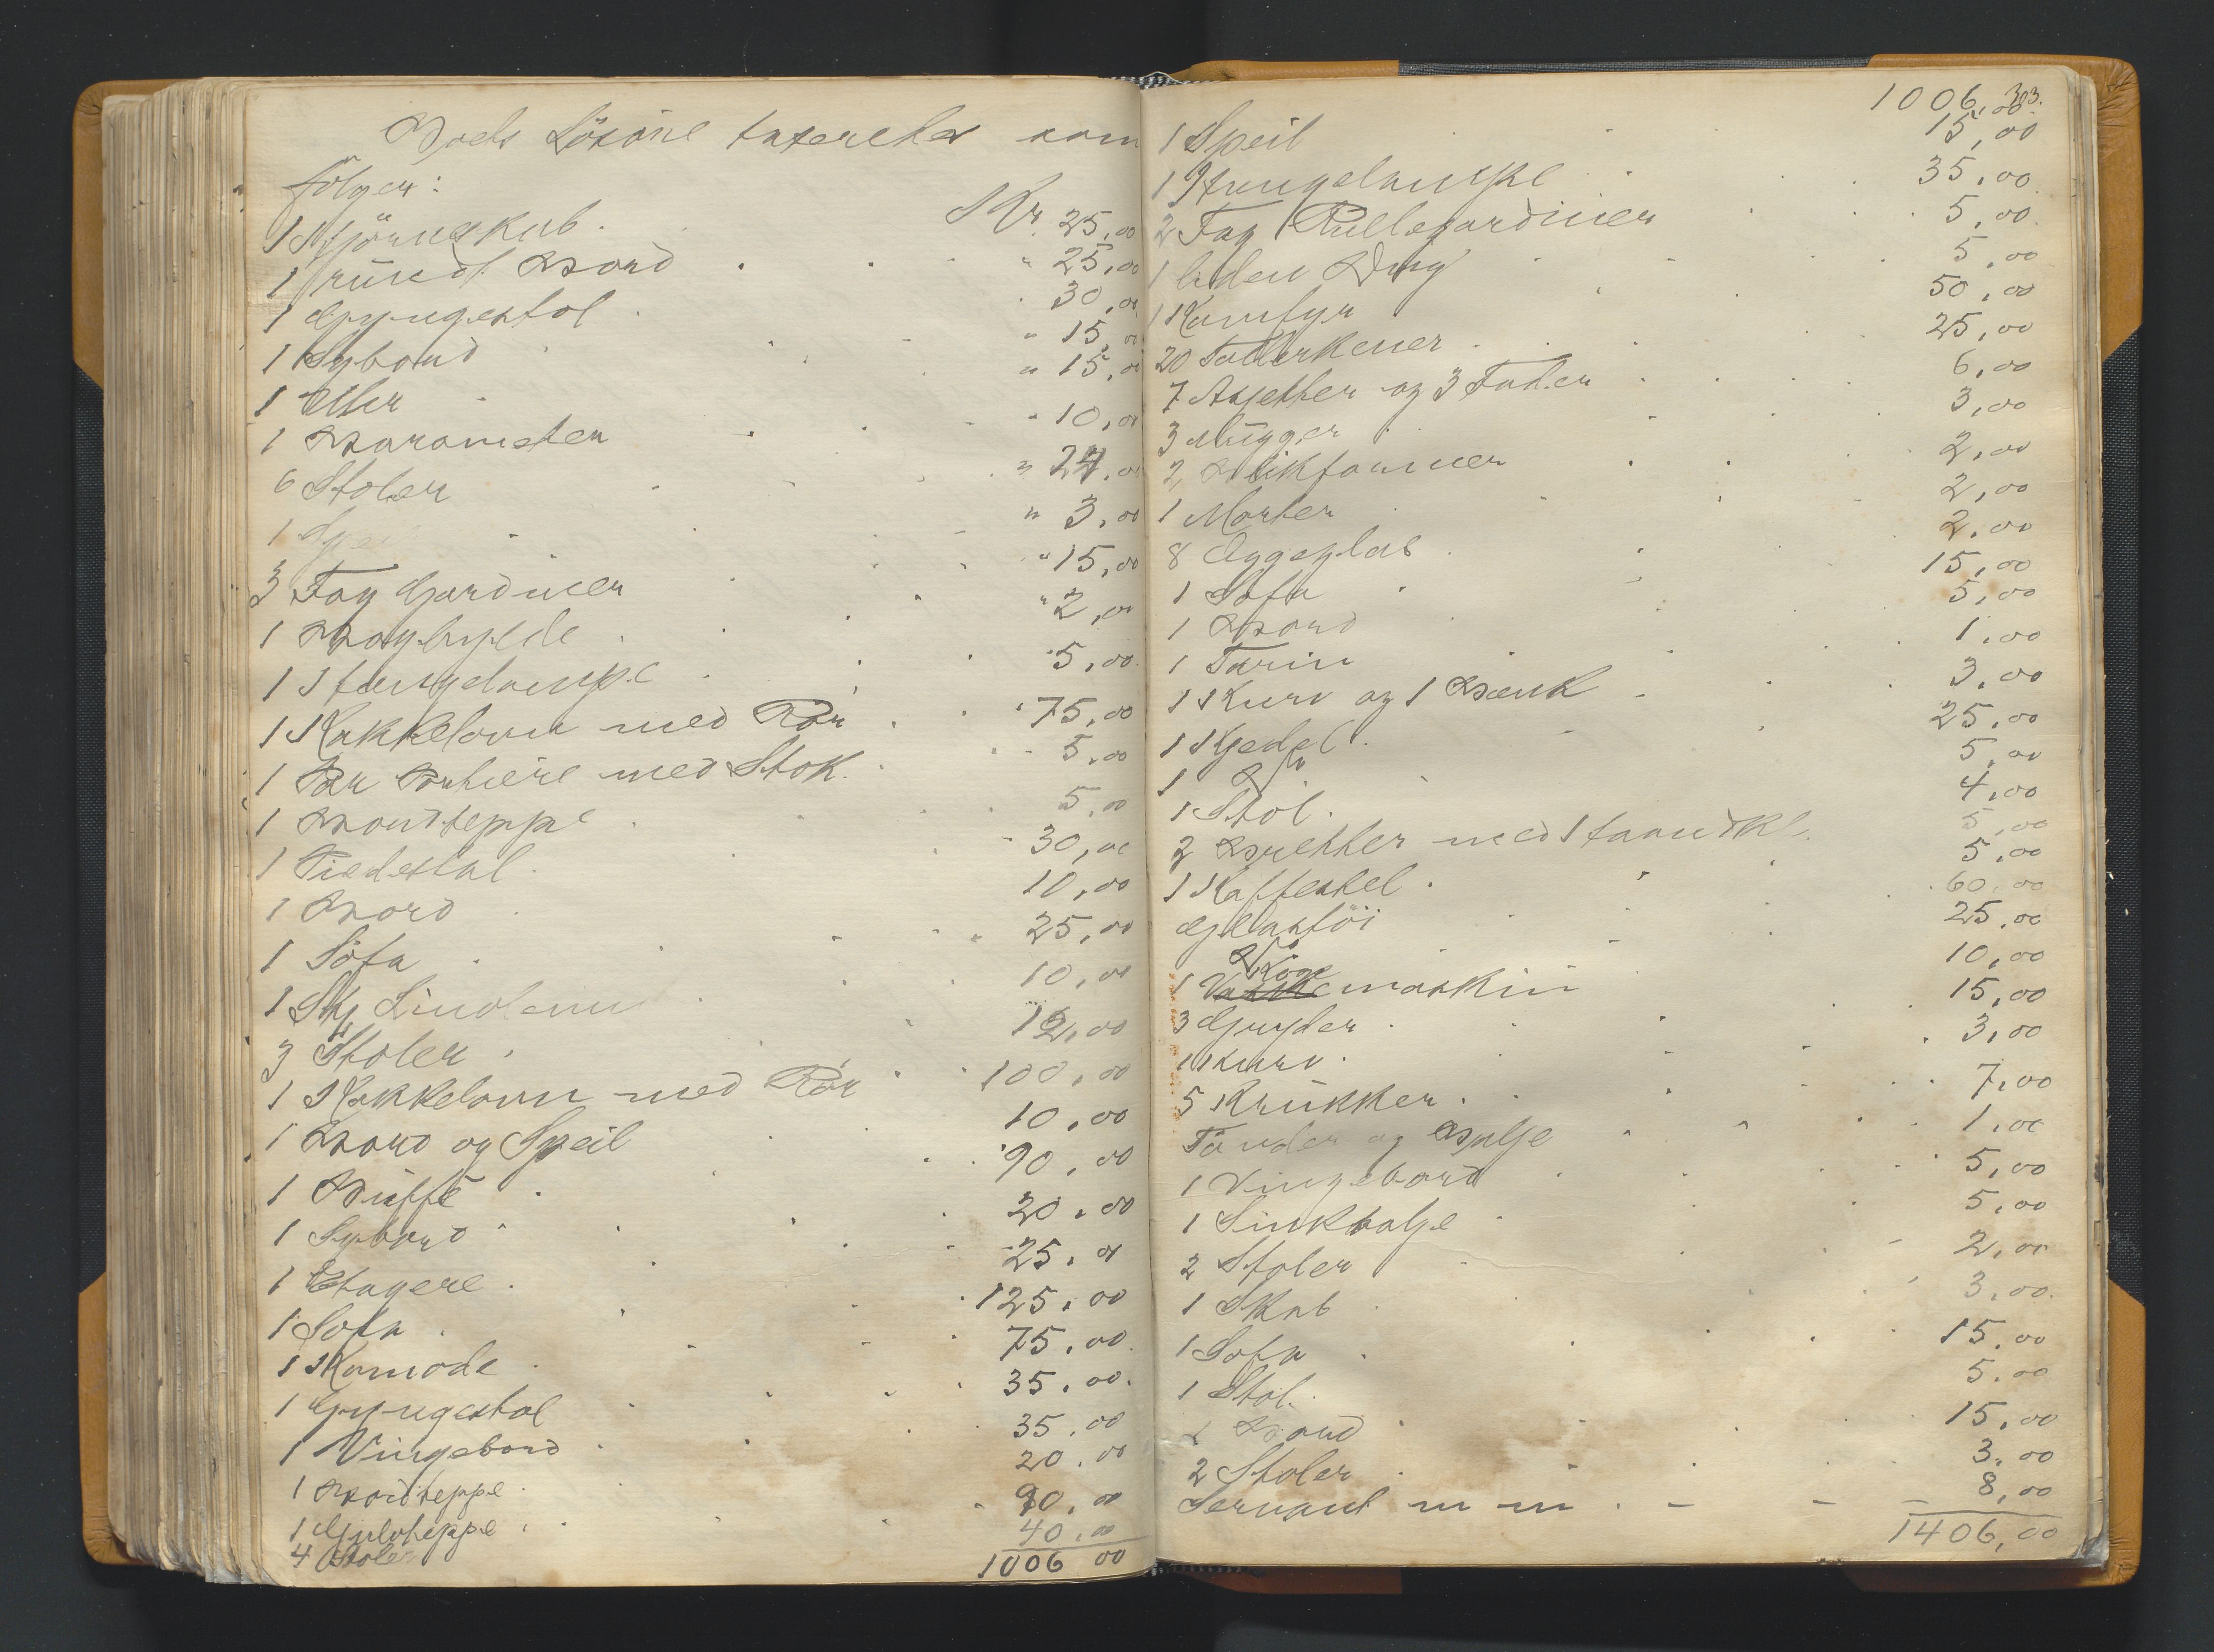 Boets Lösöre taxerethes som
följer:
1 Hjörneskab . Kr. 25,00
1 rundt Bord . . " 25,00
1 Gyngestol . " 30,00
1 Sybord . . " 15,00
1 Uhr . . " 15,00
1 Barometer . . " 10,00
6 Stoler . . " 24,00
1 . . " 3,00
3 Fag Gardiner . . " 15,00
1 Boghylde . . " 2,00
1 Hengelampe . . " 5,00
1 Kakkelovn med Rör . . " 75,00
1 Par Portiere med Stok . . " 5,00
1 Bordteppe . . 5,00
1 Piedestal . . " 30,00
1 Bord . 10,00
1 Sofa . . " 25,00
1 Stk Linoleum . . 10,00
3 Stoler . . 12,00
1 Kakkelovn med Rör . . 100,00
1 Bord og Speil . 10,00
1 Buffe . . " 90,00
1 Sybord . . 20,00
1 Etagere . . " 25,00
1 Sofa . . 125,00
1 Komode . . 75,00
1 Gyngestol . . 35,00
1 Vingebord . . 35,00
1 Bordteppe . 20,00
1 Gulvteppe . . 90,00
4 Stoler 40,00
1006 00
303.
1006,00
1 Speil . . 15,00
1 Hengelampe . . 35,00
2 Fag Rullegardiner . . 5,00
1 liden Dug . . 5,00
1 Komfyr . . 50,00
20 Tallerkener . . 25,00
7 Asjetter og 3 Fader . . 6,00
3 Mugger . . 3,00
2 Blikformer . . 2,00
1 Morter . . 2,00
8 Eggeglas . . 2,00
1 Sofa . . 15,00
1 Bord . . 5,00
1 Terin . . 1,00
1 Kurv og 1 Benk . . 3,00
1 Kjedel . . 25,00
1 . . 5,00
1 Stol . 4,00
2 Bretter med 5,00
1 Kaffestel . . 5,00
Glastöi . . 60,00
25,00
1 Vaske Koge maskin . 10,00
3 Gryder . . 15,00
1 Kurv . . 3,00
5 Krukker . . 7,00
Tönder og Balje . . 1,00
1 Vingebord . . 5,00
1 Sinkbalje . . 5,00
2 Stoler . . 2,00
1 Skab . . 3,00
1 Sofa . . 15,00
1 Stol . . 5,00
Bord . . 15,00
2 Stoler . . 3,00
Servant m m . - - 8,00
1406,00